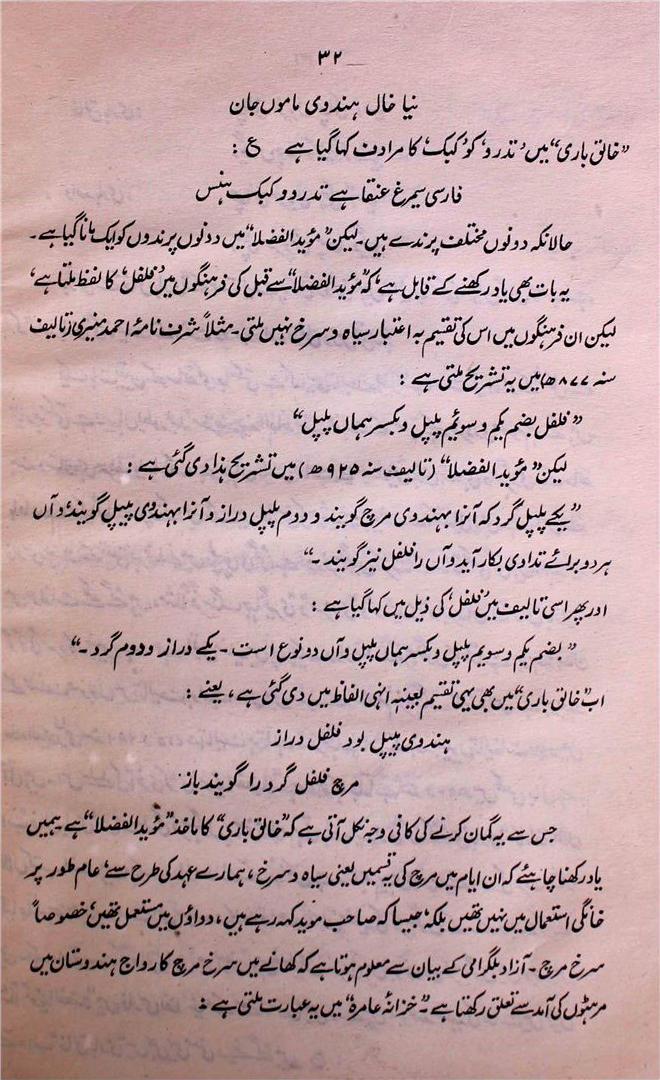 ۳۲
نیا خال ہندوی ماموں جان
”خالق باری“ میں ’تدرو‘ کو ’کبک‘ کا مرادف کہا گیا ہے ع :
فارسی سیمرغ عنقا ہے تدرو و کبک ہنس
حالانکہ دونوں مختلف پرندے ہیں۔ لیکن ”مؤید الفضلا“ میں دونوں پرندوں کو ایک مانا گیا ہے۔
یہ بات بھی یاد رکھنے کے قابل ہے کہ ”مؤید الفضلا“ سے قبل کی فرہنگوں میں ’فلفل‘ کا لفظ ملتا ہے،
لیکن ان فرہنگوں میں اس کی تقسیم بہ اعتبار سیاہ و سرخ نہیں ملتی۔ مثلاً شرف نامۂ احمد منیری (تالیف
سنہ ۸۷۷ھ) میں یہ تشریح ملتی ہے :
”فلفل بضم یکم و سوئیم پلپل و بکسر ہماں پلپل“
لیکن ”مؤید الفضلا“ (تالیف سنہ ۹۲۵ھ) میں تشریح ہذا دی گئی ہے :
”یکے پلپل گرد کہ آنرا بہندوی مرچ گویند و دوم پلپل دراز و آنرا بہندوی پیپل گویند و آں
ہر دو برائے تداوی بکار آید و آں را فلفل نیز گویند۔“
اور پھر اسی تالیف میں ’فلفل‘ کی ذیل میں کہا گیا ہے :
”بضم یکم و سویم پلپل و بکسر ہماں پلپل و آں دو نوع است۔ یکے دراز و دوم گرد۔“
اب ”خالق باری“ میں بھی یہی تقسیم بعینہٖ انہی الفاظ میں دی گئی ہے، یعنے :
ہندوی پیپل بود فلفل دراز
مرچ فلفل گرد را گویند باز
جس سے یہ گمان کرنے کی کافی وجہ نکل آتی ہے کہ ”خالق باری“ کا ماخذ ”مؤید الفضلا“ ہے۔ ہمیں
یاد رکھنا چاہئے کہ ان ایام میں مرچ کی یہ قسمیں یعنی سیاہ و سرخ، ہمارے عہد کی طرح سے، عام طور پر
خانگی استعمال میں نہیں تھیں بلکہ، جیسا کہ صاحب موید کہہ رہے ہیں، دواؤں میں مستعمل تھیں، خصوصاً
سرخ مرچ۔ آزاد بلگرامی کے بیان سے معلوم ہوتا ہے کہ کھانے میں سرخ مرچ کا رواج ہندوستان میں
مرہٹوں کی آمد سے تعلق رکھتا ہے۔ ”خزانۂ عامرہ“ میں یہ عبارت ملتی ہے :